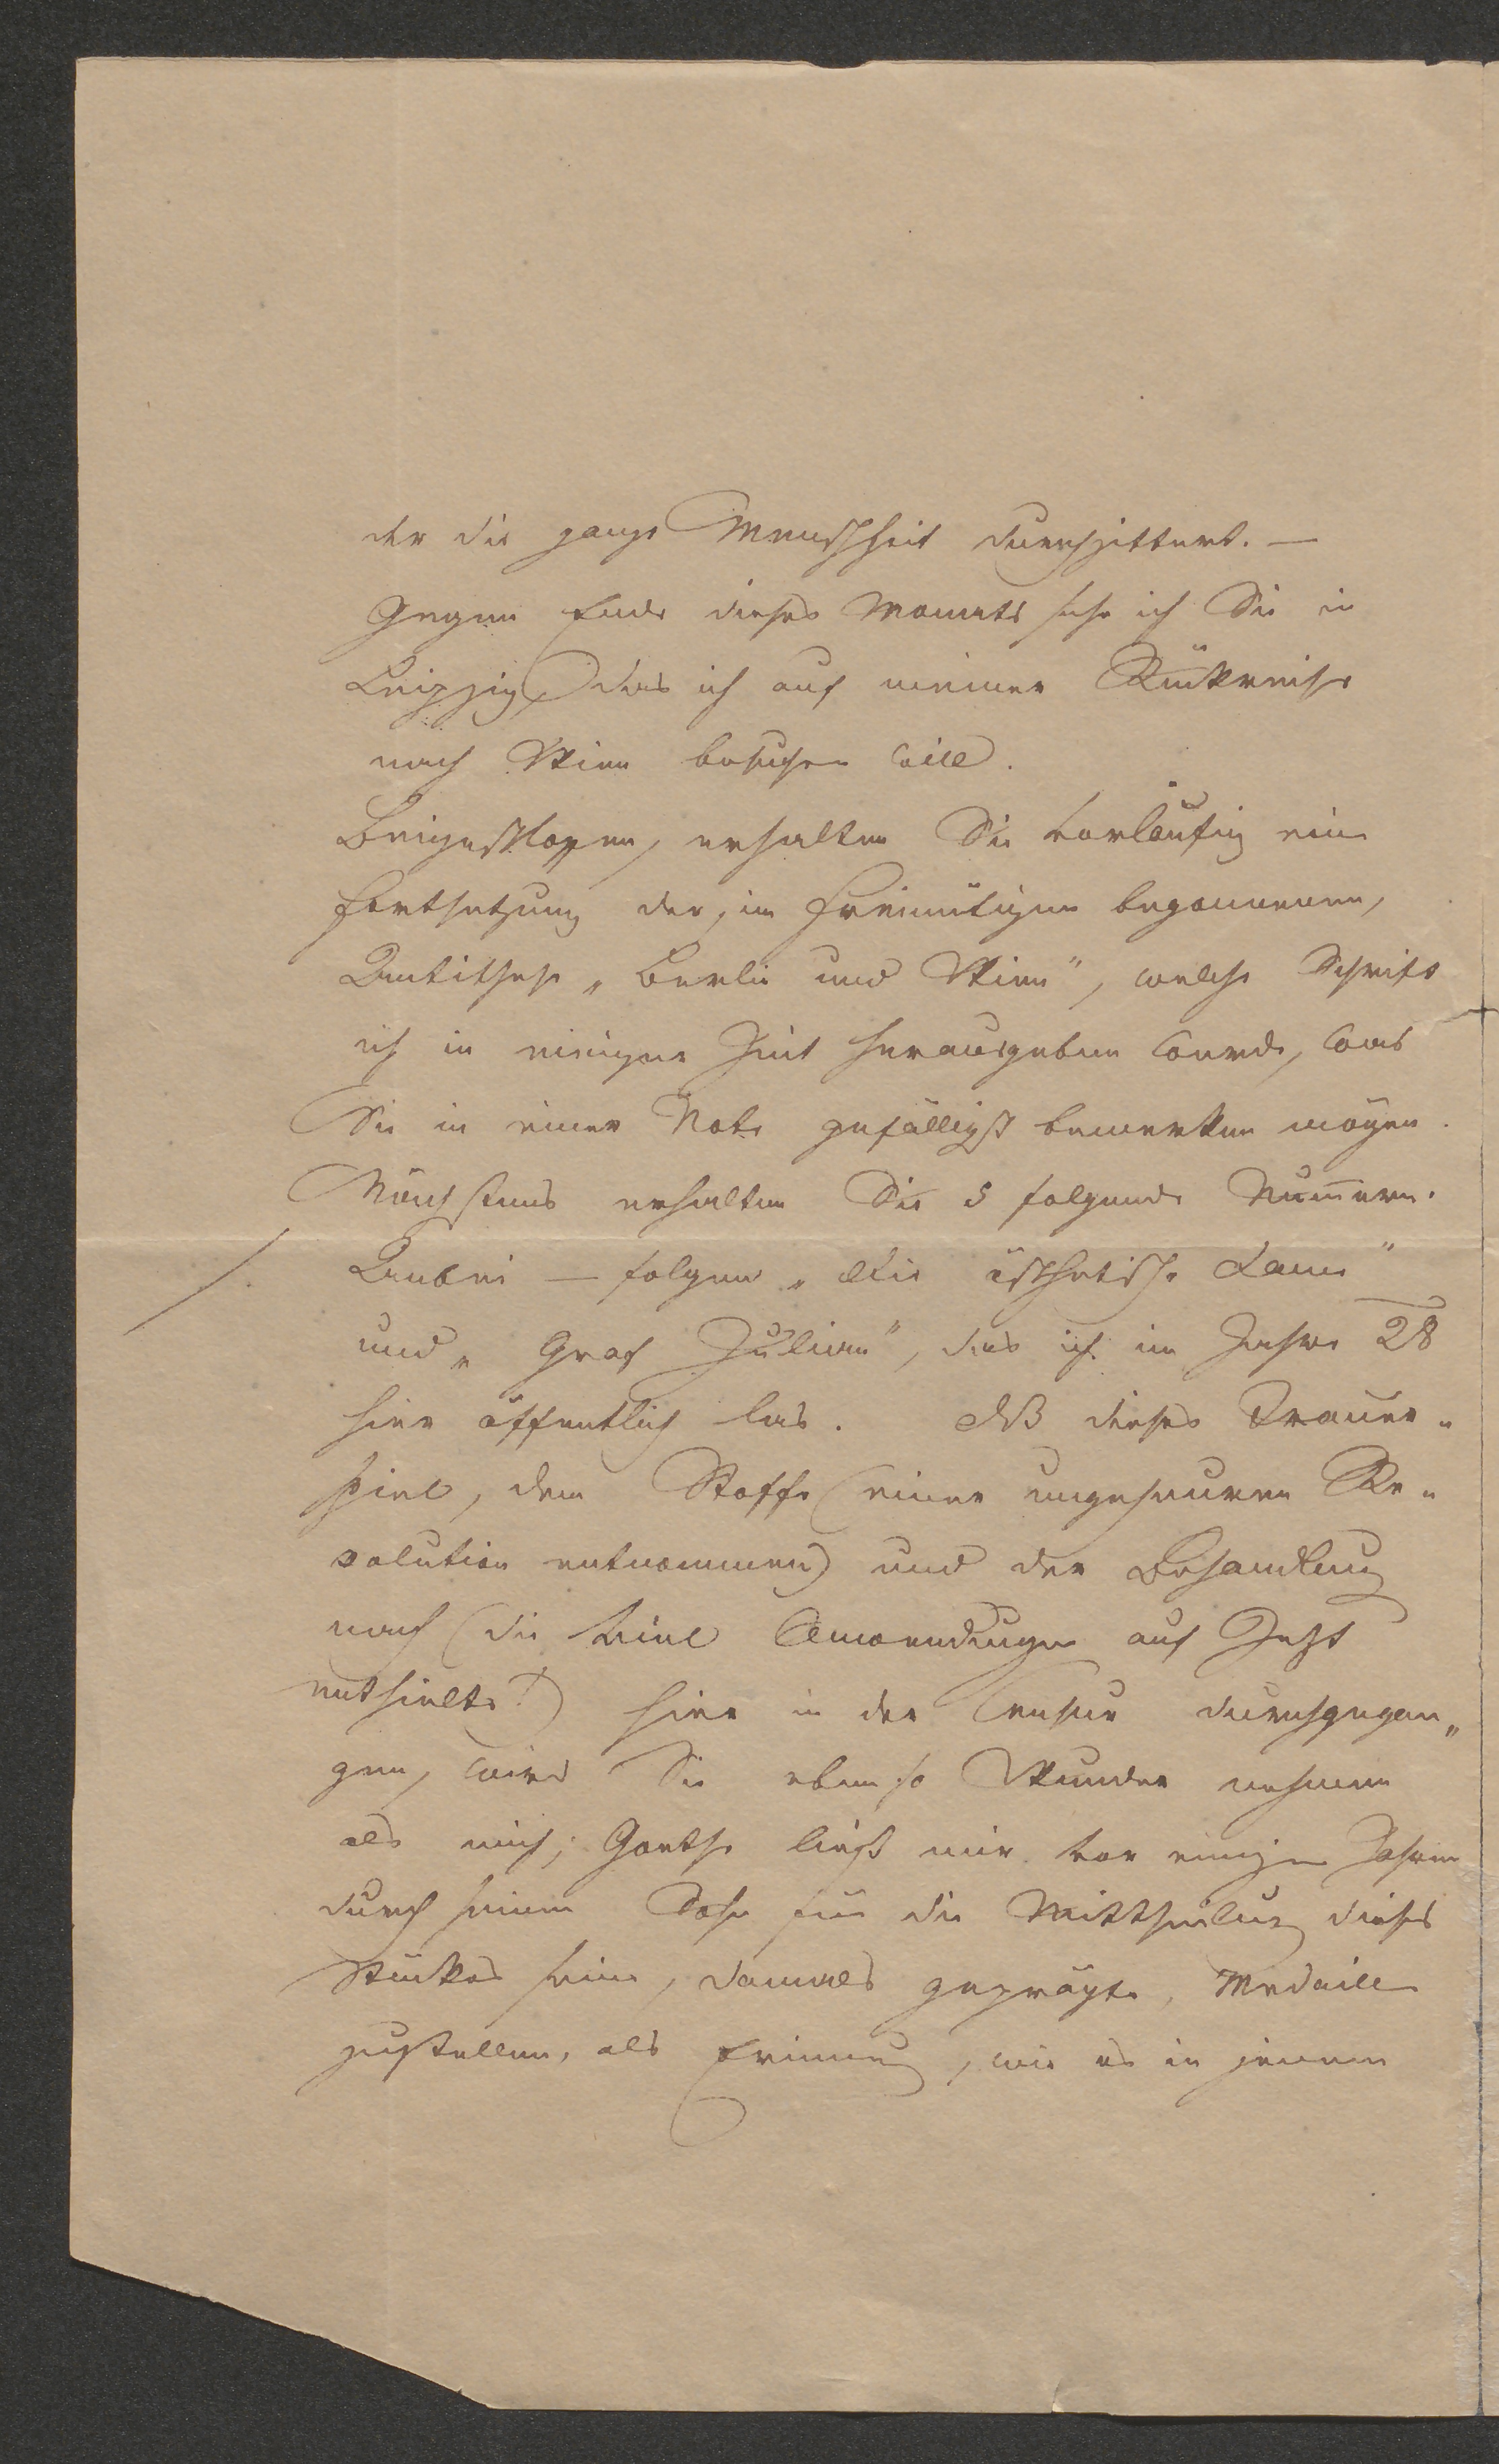 der die ganze Menschheit durchzittert. —
Gegen Ende dieses Monats sehe ich Sie in
Leipzig, das ich auf meiner Rükreise
nach Wien besuchen will.
Beigeschlossen, erhalten Sie vorläufig eine
Fortsetzung der, im Freimütigen begonnenen,
Antithese „Berlin und Wien", welche Schrift
ich in einiger Zeit herausgeben werde, was
Sie in einer Note gefälligst bemerken mögen.
Nächstens erhalten Sie 5 folgende Num̅ern.
Anbei — folgen „Die ästhetische Dame"
und „Graf Julian", das ich im Jahre 28
hier öffentlich las. Daß dieses Trauer-
spiel, dem Stoffe (einer ungeheuren Re-
volution entnommen) und der Behandlung
nach (die viele Anwendungen auf Jetzt
enthielte!) hier in der Censur durchgegan-
gen, wird Sie eben so Wunder nehmen
als mich; Goethe ließ mir vor einigen Jahren
durch seinen Sohn für die Mittheilung dieses
Stückes seine, damals geprägte, Medaille
zustellen, als Erinnerung, wie es in jenem